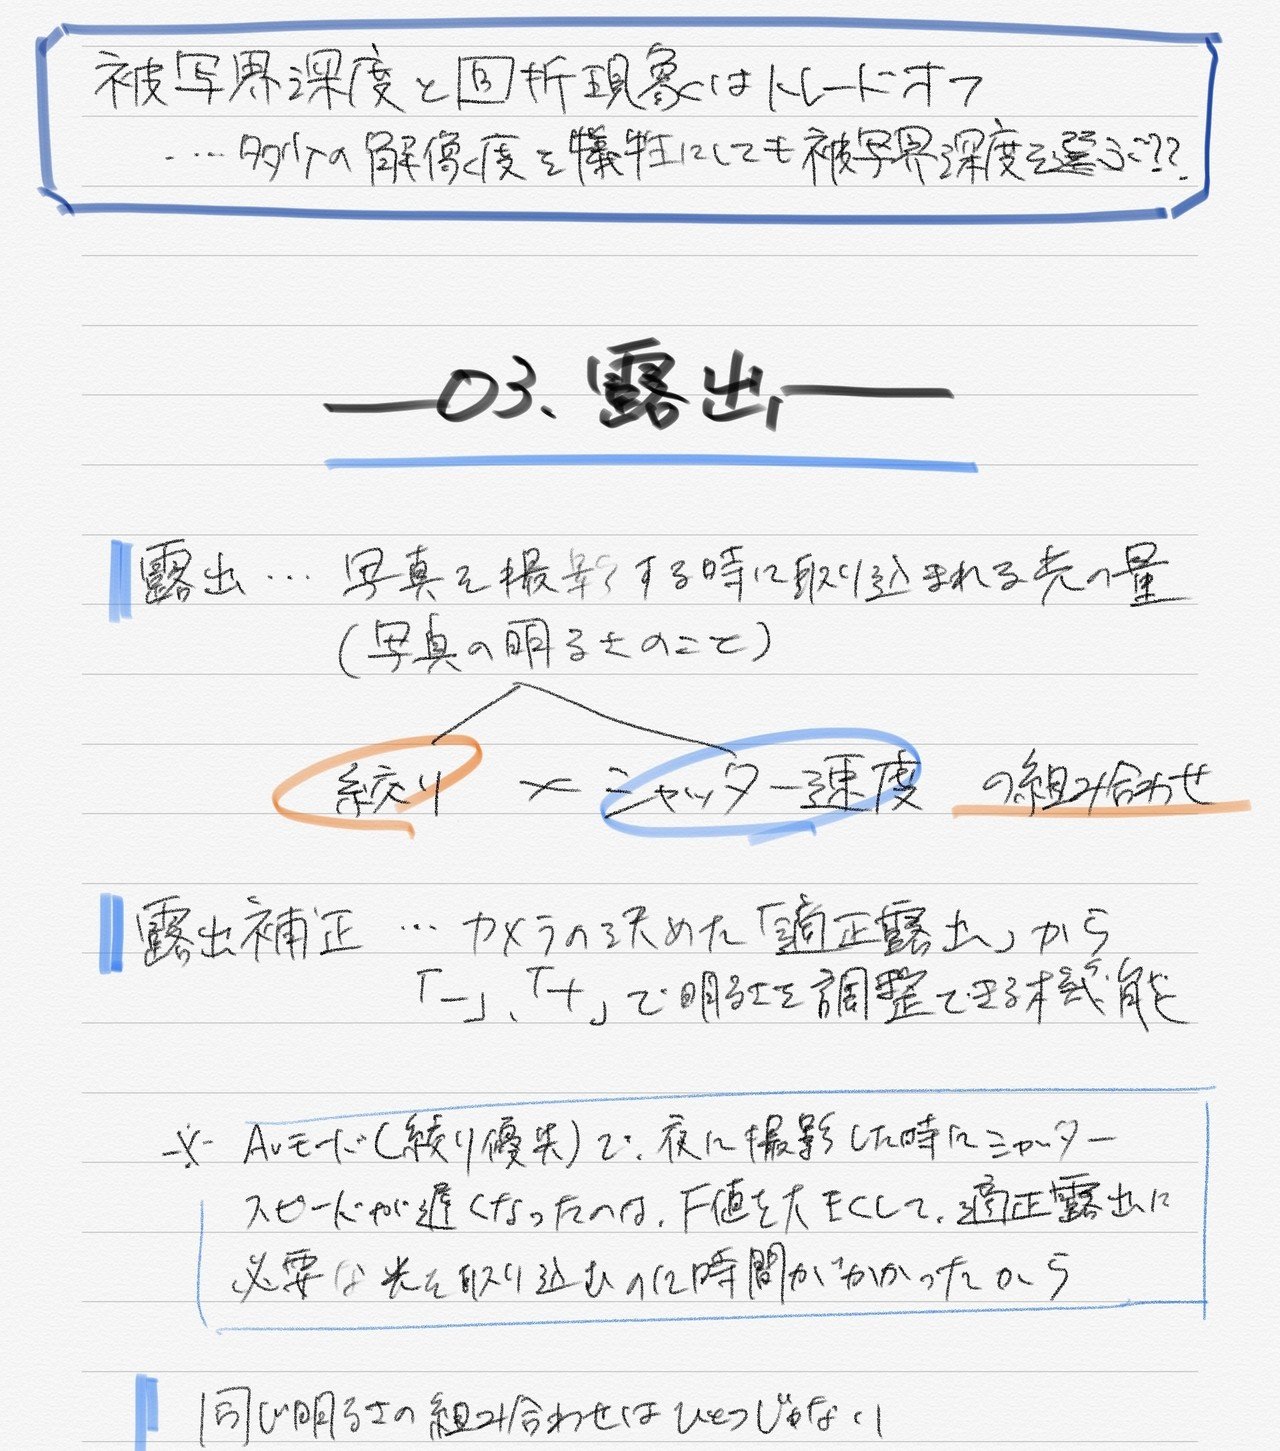 被写界深度と回折現象はトレードオフ
…多少の解像度を犠牲にしても被写界深度を選ぶ??
03. 露出
露出… 写真を撮影する時に取り込まれる光の量
(写真の明るさのこと)
絞り × シャッター速度 の組み合わせ
露出補正 … カメラの決めた「適正露出」から
「-」、「+」で明るさを調整できる機能
※ Avモード(絞り優先)で、夜に撮影した時にシャッター
スピードが遅くなったのは、F値を大きくして、適正露出に
必要な光を取り込むのに時間がかかったから
同じ明るさの組み合わせはひとつじゃない